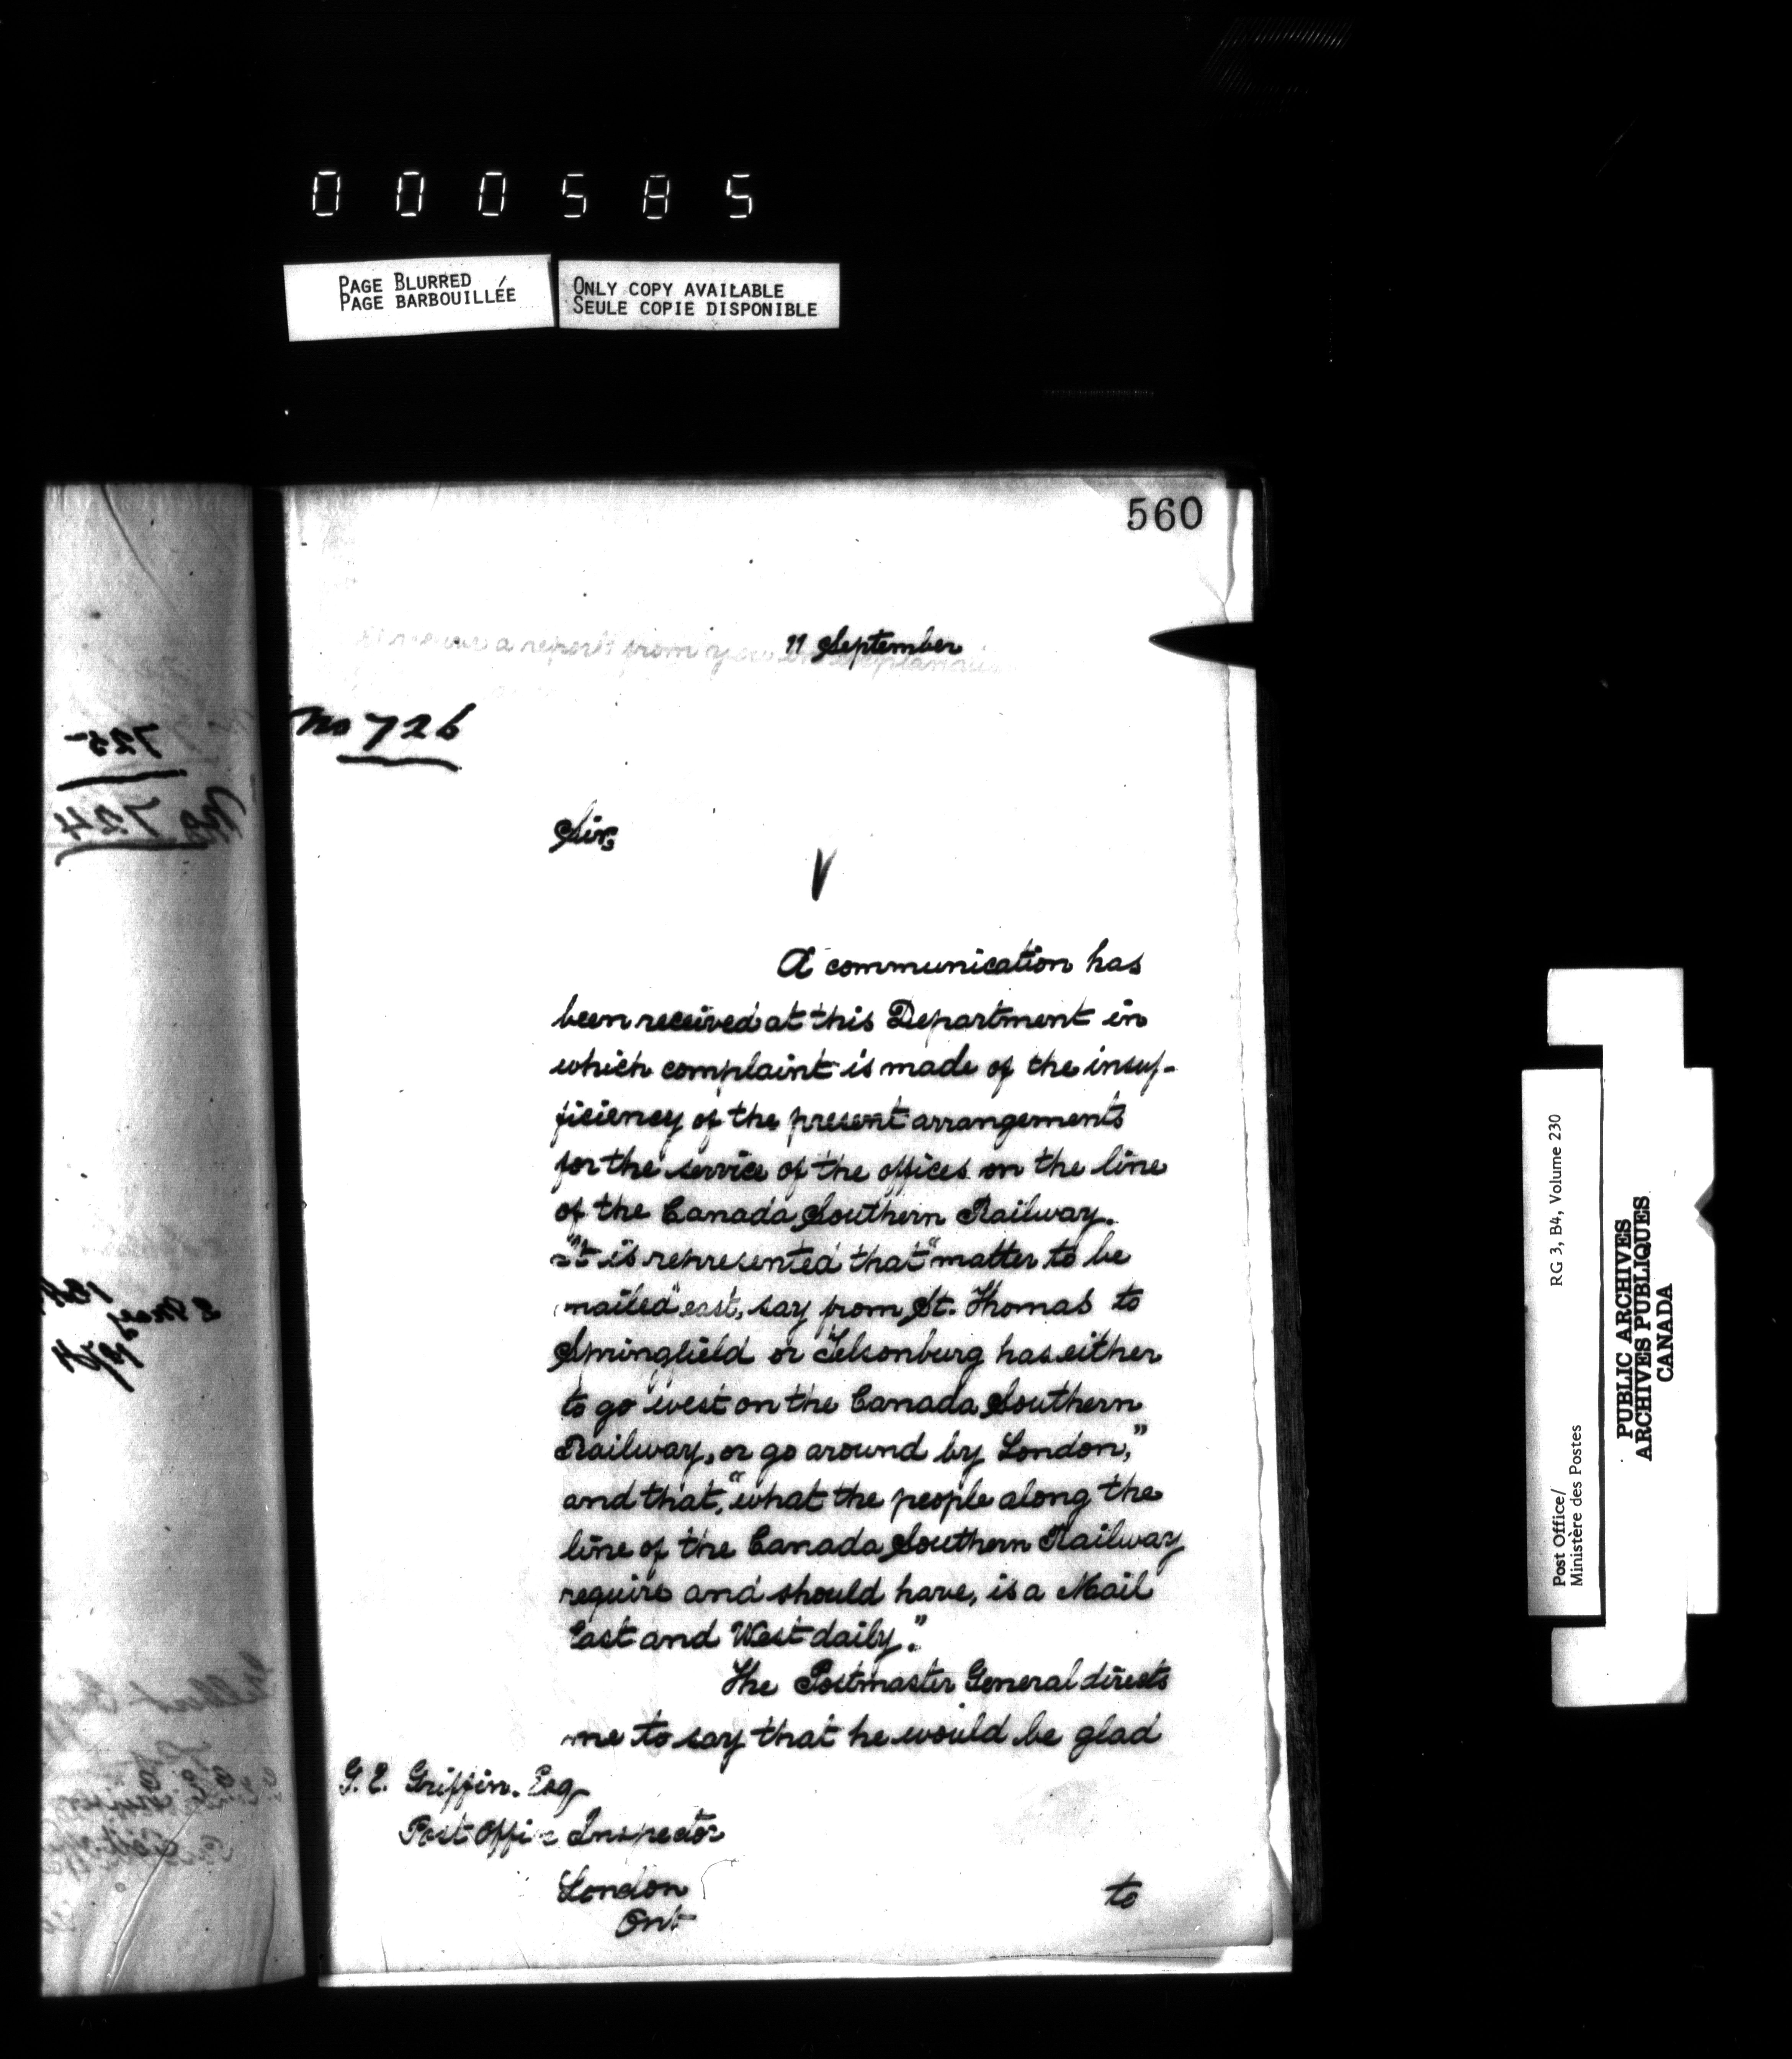 000585
PAGE BLURRED
PAGE BARBOUILLÉE
ONLY COPY AVAILABLE
SEULE COPIE DISPONIBLE
560
a report from you in explanation
11 September
No 726
725
No 724
Sir,
A communication has
been received at this Department in
which complaint is made of the insuf-
ficiency of the present arrangements
for the service of the offices on the line
of the Canada Southern Railway.
It is represented that "matter to be
mailed" east, say from St. Thomas to
Springfield or Tilsonburg has either
to go west on the Canada Southern
Railway, or go around by London,"
and that, "what the people along the
line of the Canada Southern Railway
require and should have, is a Mail
East and West daily."
The Postmaster General directs
me to say that he would be glad
G. E. Griffin. Esq
Post Office Inspector
London
Ont
to
Post Office/
Ministère des Postes
RG 3, B4, Volume 230
PUBLIC ARCHIVES
ARCHIVES PUBLIQUES
CANADA